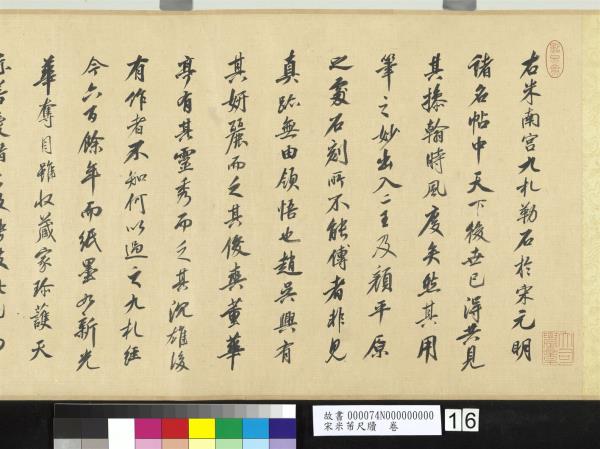 右米南宮九札勒石於宋元明
諸名帖中天下後世已得共見
其揮翰時風度矣然其用
筆之妙出入二王及顏平原
之處石刻所不能傳者非見
真跡無由領悟也趙吳興有
其妍麗而乏其俊爽董華
亭有其靈秀而乏其沉雄後
有作者不知何以過之九札經
今六百餘年而紙墨如新光
華奪目雖收藏家珍護天
故書 000074N000000000
宋米芾尺牘 卷
16